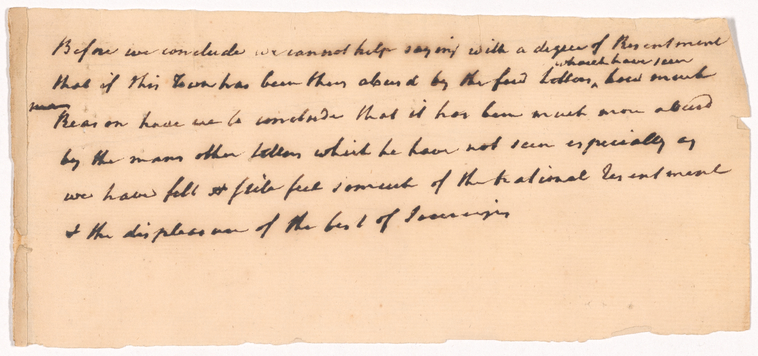 Before we conclude we cannot help saying with a degree of Resentment
which we have seen
that if this Town has been thus abused by the few Letters, how much
more
Reason have we to conclude that it has been much more abused
by the many other Letters which we have not seen especially as
we have felt & still feel so much of the National Resentment
& the displeasure of the best of Sovereigns